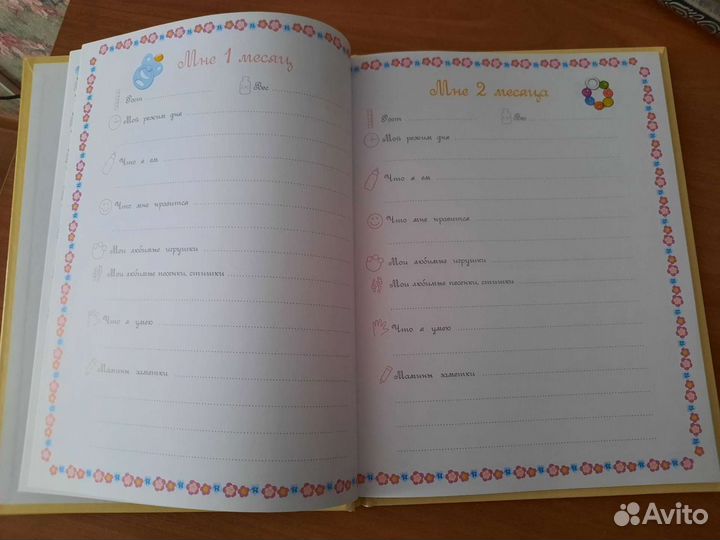 Мне 1 месяц
Рост Вес
Мой режим дня
Что я ем
Что мне нравится
Мои любимые игрушки
Мои любимые песенки, стишки
Что я умею
Мамины заметки
Мне 2 месяца
Рост Вес
Мой режим дня
Что я ем
Что мне нравится
Мои любимые игрушки
Мои любимые песенки, стишки
Что я умею
Мамины заметки
Avito